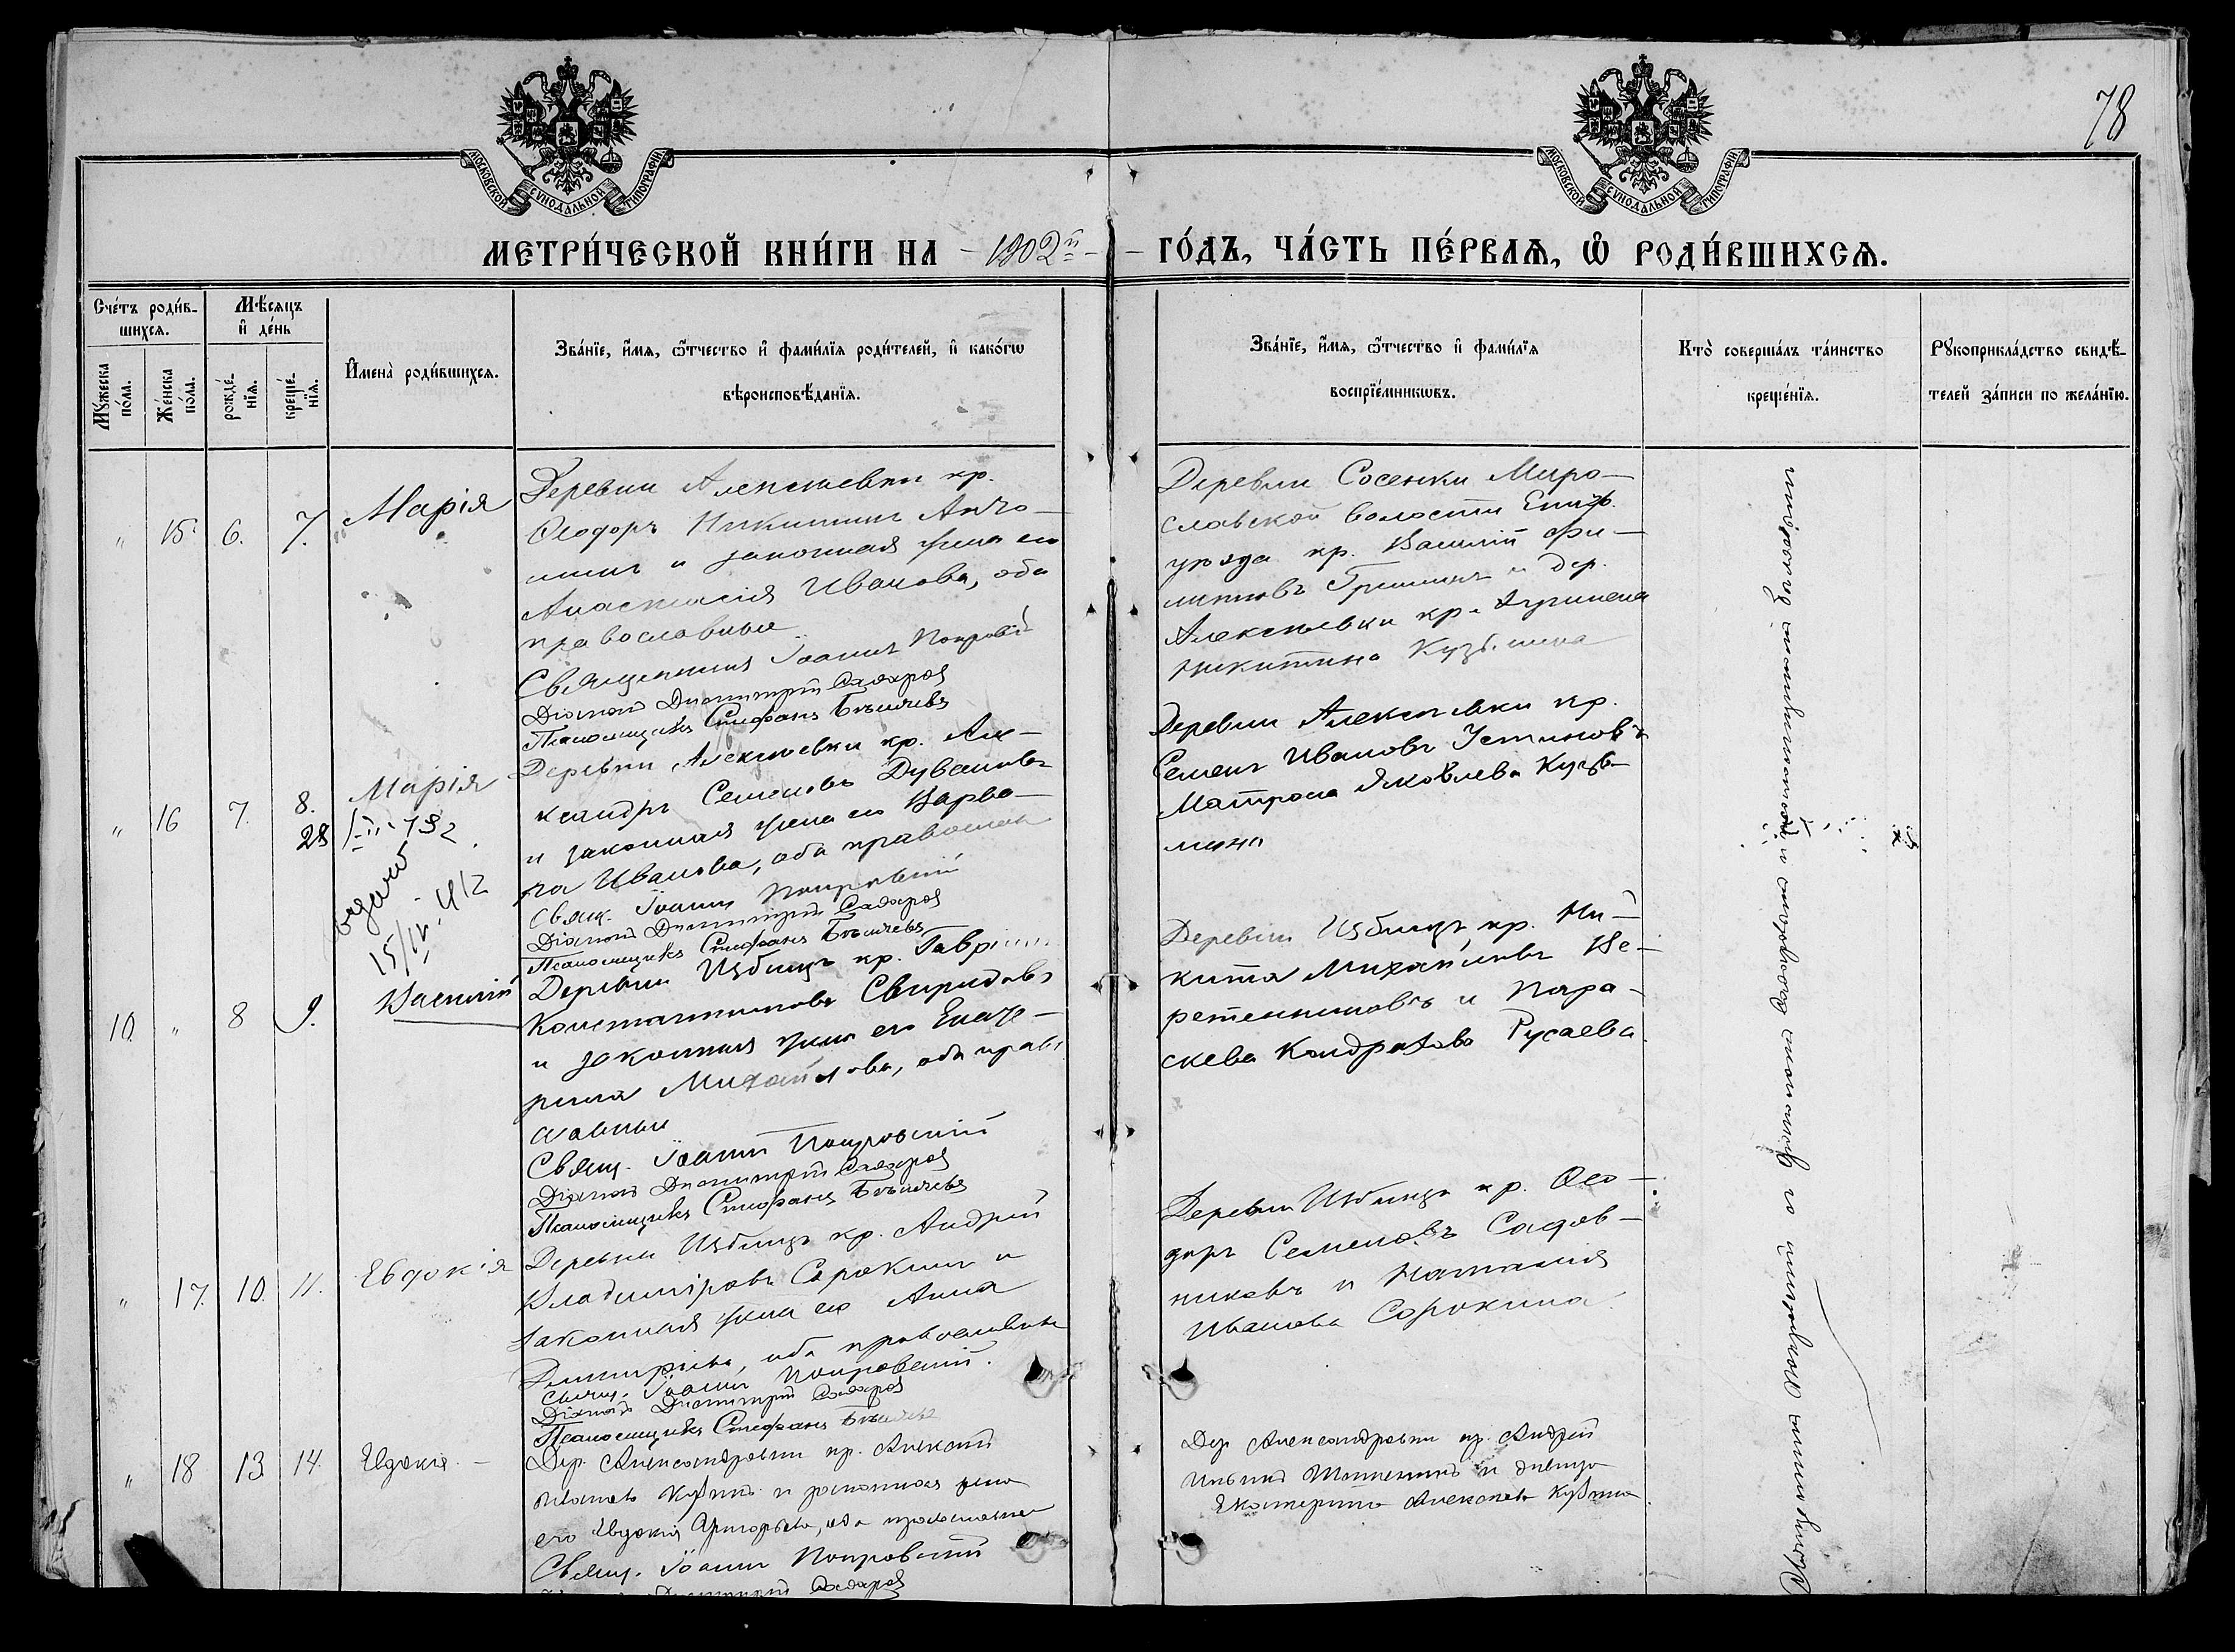 78
МОСКОВСКОЙ СУНОДАЛЬНОЙ ТИПОГРАФІИ
МОСКОВСКОЙ СУНОДАЛЬНОЙ ТИПОГРАФІИ
МЕТРИ́ЧЕСКОЙ КНИ́ГИ НА - 1902й - - ГО́ДЪ, ЧА́СТЬ ПЕ́РВАѦ, Ѡ҆ РОДИ́ВШИХСѦ.
Сче́тъ роди́в-
шихсѧ.
Мꙋ́жеска по́ла.
Же́нска по́ла.
Мѣ́сѧцъ
и҆ де́нь
рожде́-
нїѧ.
креще́-
нїѧ.
И҆мена̀ роди́вшихсѧ.
Зва́нїе, и҆́мѧ, ѻ҆́тчество и҆ фами́лїѧ роди́телей, и҆ како́гѡ
вѣроисповѣ́данїѧ.
Зва́нїе, и҆́мѧ, ѻ҆́тчество и҆ фами́лїѧ
воспрїе́мникѡвъ.
Кто̀ соверша́лъ та́инство
креще́нїѧ.
Рꙋкоприкла́дство свидѣ́-
телей за́писи по жела́нїю.
" 15. 6. 7. Марія
Деревни Алексѣевки кр.
Ѳеодоръ Никитинъ Анто-
шинъ и законная жена его
Анастасія Иванова, оба
православные
Священникъ Іоаннъ Покровскій
Діаконъ Димитрій Сахаровъ
Псаломщикъ Стефанъ
Деревни Сосенки Миро-
славской волости Епиф.
уѣзда кр. Василій Фи-
липповъ Гришинъ и дер.
Алексѣевки кр.
Никитина Кузьмина
" 16 7. 8. Марія
28 132
выдано
15/IV 412
Деревни Алексѣевки кр. Але-
ксандръ Семеновъ Дувановъ
и законная жена его Варва-
ра Иванова, оба православ
Свящ. Іоаннъ Покровскій
Діаконъ Димитрій Сахаровъ
Псаломщикъ Стефанъ
Деревни Алексѣевки кр.
Семенъ Ивановъ Устиновъ и
Матрона Яковлева Кузь-
мина
10. " 8 9. Василій
Деревни Избищъ кр. Гавр
Константиновъ Свиридовъ
и законная жена его Екате-
рина Михайлова, оба прав
славные
Свящ. Іоаннъ Покровскій
Діаконъ Димитрій Сахаровъ
Псаломщикъ Стефанъ
Деревни Избищъ кр. Ни-
кита Михайловъ Ве-
ретенниковъ и Пара-
скева Кондратова Русаева.
" 17. 10. 11. Евдокія
Деревни Избищъ кр. Андрей
Владиміровъ Сорокинъ и
законная жена его Анна
Димитріева, оба православные
Свящ. Іоаннъ Покровскій.
Діаконъ Димитрій Сахаровъ
Псаломщикъ Стефанъ
Деревни Избищъ кр. Ѳео-
доръ Семеновъ Садов-
никовъ и Наталія
Иванова Сорокина.
" 18 13. 14. Евдокія -
Дер. Александровки кр. Алексѣй
Кузинъ и законная жена
его Евдокія Григорьева, оба православные
Свящ. Іоаннъ Покровскій
Димитрій Сахаровъ
Дер. Александровки кр. Андрей
Ильинъ и дѣвица
Екатерина Алексѣева Кузина